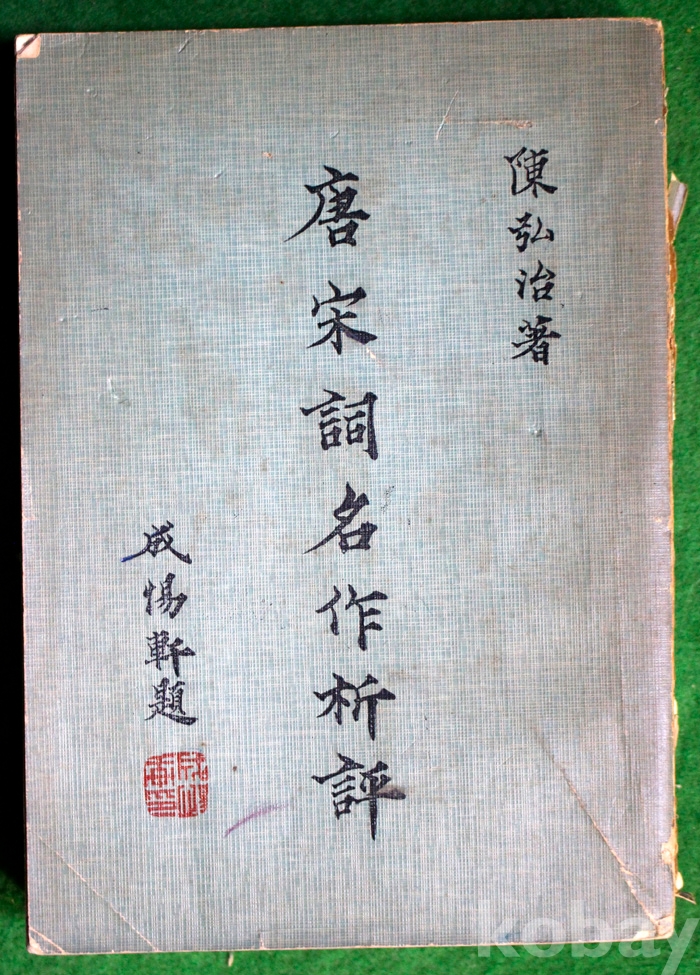 陳弘治著
唐宋詞名作析評
成惕軒題
kobay